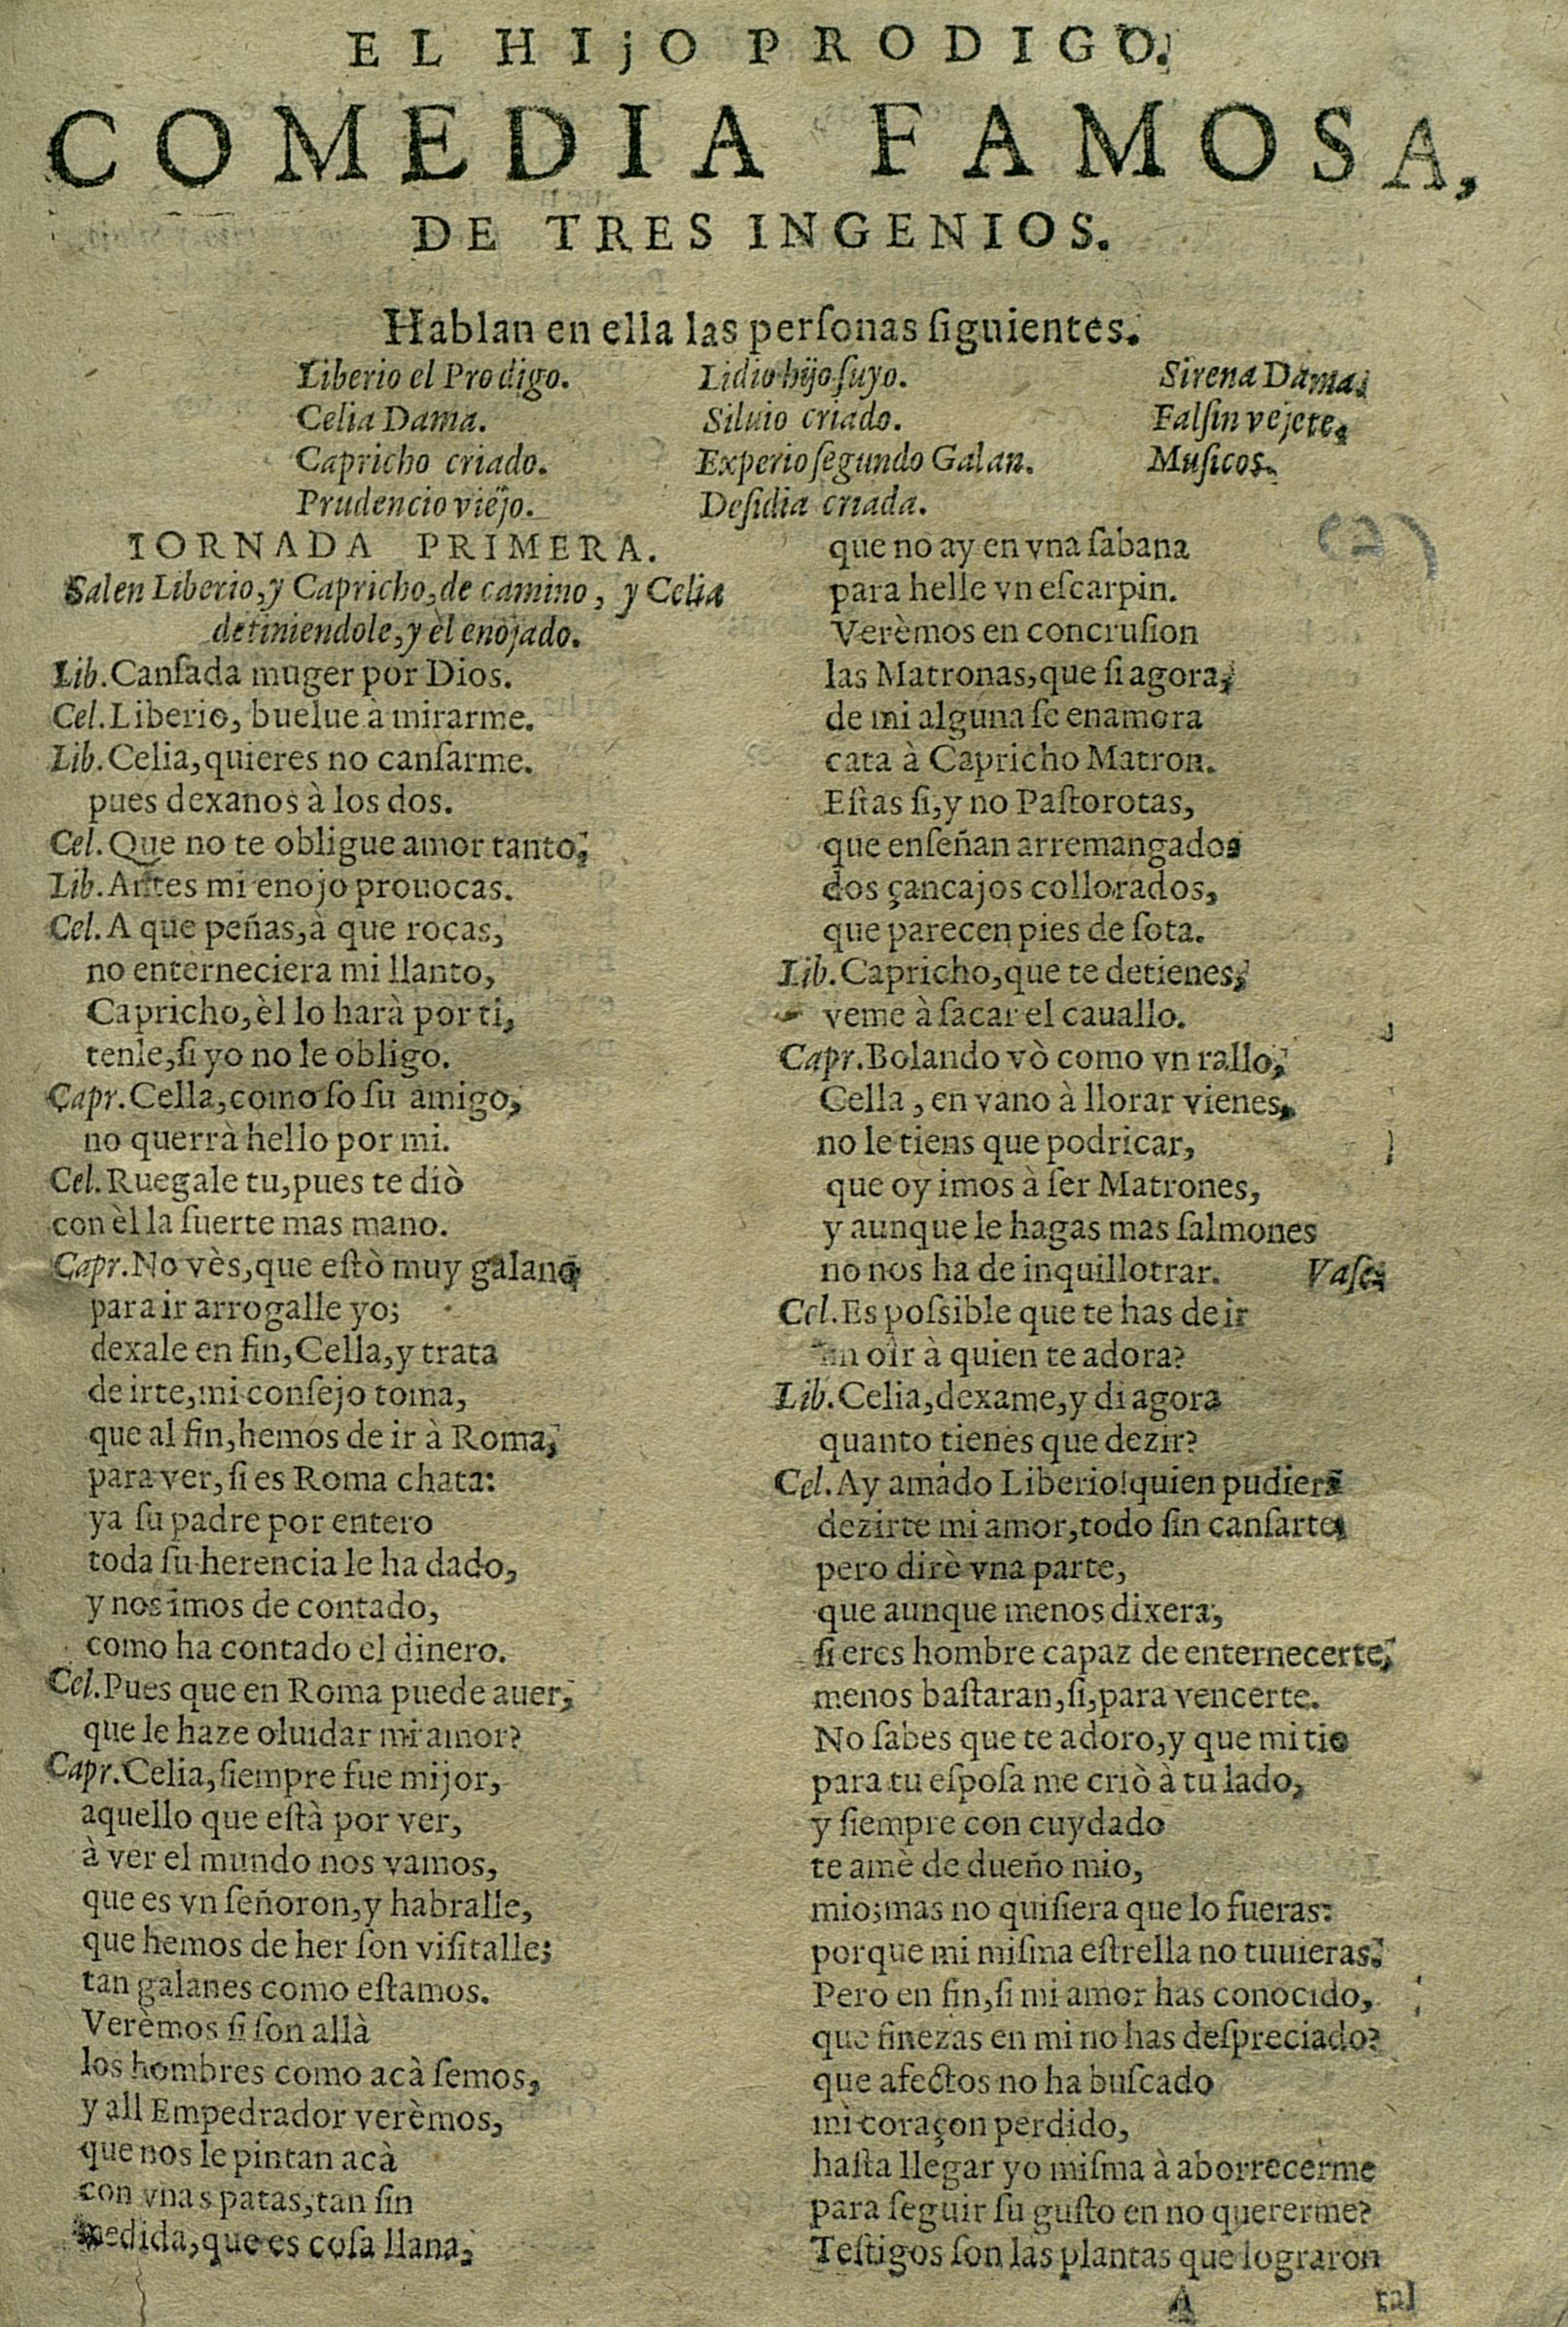 EL HIjO PRODIGO.
COMEDIA FAMOSA,
DE TRES INGENIOS.
Hablan en ella las perſonas ſiguientes.
Liberio el Prodigo.
Celia Dama.
Capricho criado.
Prudencio viejo.
Lidio hijo ſuyo.
Siluio criado.
Experio ſegundo Galan.
Deſidia criada.
Sirena Dama.
Falſin vejete.
Muſicos.
IORNADA PRIMERA.
Salen Liberio, y Capricho, de camino, y Celia
detiniendole, y èl enojado.
Lib. Canſada muger por Dios.
Cel. Liberio, buelue à mirarme.
Lib. Celia, quieres no canſarme.
pues dexanos à los dos.
Cel. Que no te obligue amor tanto,
Lib. Antes mi enojo prouocas.
Cel. A que peñas, à que rocas,
no enterneciera mi llanto,
Capricho, èl lo harà por ti,
tenle, ſi yo no le obligo.
Capr. Cella, como ſo ſu amigo,
no querrà hello por mi.
Cel. Ruegale tu, pues te diò
con èl la ſuerte mas mano.
Capr. No vès, que eſtò muy galano
para ir arrogalle yo;
dexale en fin, Cella, y trata
de irte, mi conſejo toma,
que al fin, hemos de ir à Roma,
para ver, ſi es Roma chata:
ya ſu padre por entero
toda ſu herencia le ha dado,
y nos imos de contado,
como ha contado el dinero.
Cel. Pues que en Roma puede auer,
que le haze oluidar mi amor?
Capr. Celia, ſiempre fue mijor,
aquello que eſtà por ver,
à ver el mundo nos vamos,
que es vn ſeñoron, y habralle,
que hemos de her ſon viſitalle;
tan galanes como eſtamos.
Verèmos ſi ſon allà
los hombres como acà ſemos,
y all Empedrador verèmos,
que nos le pintan acà
con vnas patas, tan ſin
medida, que es coſa llana,
que no ay en vna ſabana
para helle vn eſcarpin.
Verèmos en concruſion
las Matronas, que ſi agora,
de mi alguna ſe enamora
cata à Capricho Matron.
Eſtas ſi, y no Paſtorotas,
que enſeñan arremangados
dos çancajos collorados,
que parecen pies de ſota.
Lib. Capricho, que te detienes,
veme à ſacar el cauallo.
Capr. Bolando vò como vn rallo,
Cella, en vano à llorar vienes,
no le tiens que podricar,
que oy imos à ſer Matrones,
y aunque le hagas mas ſalmones
no nos ha de inquillotrar. Vaſe.
Cel. Es poſsible que te has de ir
oìr à quien te adora?
Lib. Celia, dexame, y di agora
quanto tienes que dezir?
Cel. Ay amado Liberio! quien pudiera
dezirte mi amor, todo ſin canſarte,
pero dirè vna parte,
que aunque menos dixera,
ſi eres hombre capaz de enternecerte,
menos baſtaran, ſi, para vencerte.
No ſabes que te adoro, y que mi tio
para tu eſpoſa me criò à tu lado,
y ſiempre con cuydado
te amè de dueño mio,
mio; mas no quiſiera que lo fueras:
porque mi miſma eſtrella no tuuieras.
Pero en fin, ſi mi amor has conocido,
que finezas en mi no has deſpreciado?
que afectos no ha buſcado
mi coraçon perdido,
haſta llegar yo miſma à aborrecerme
para ſeguir ſu guſto en no quererme?
Teſtigos ſon las plantas que lograron
A
tal